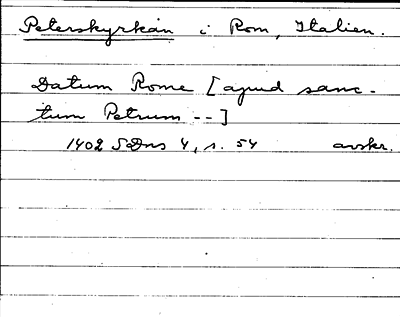 Peterskyrkan i Rom, Italien.
Datum Rome [apud sanc-
tum Petrum --]
1402 SDns 4, s. 54 avskr.